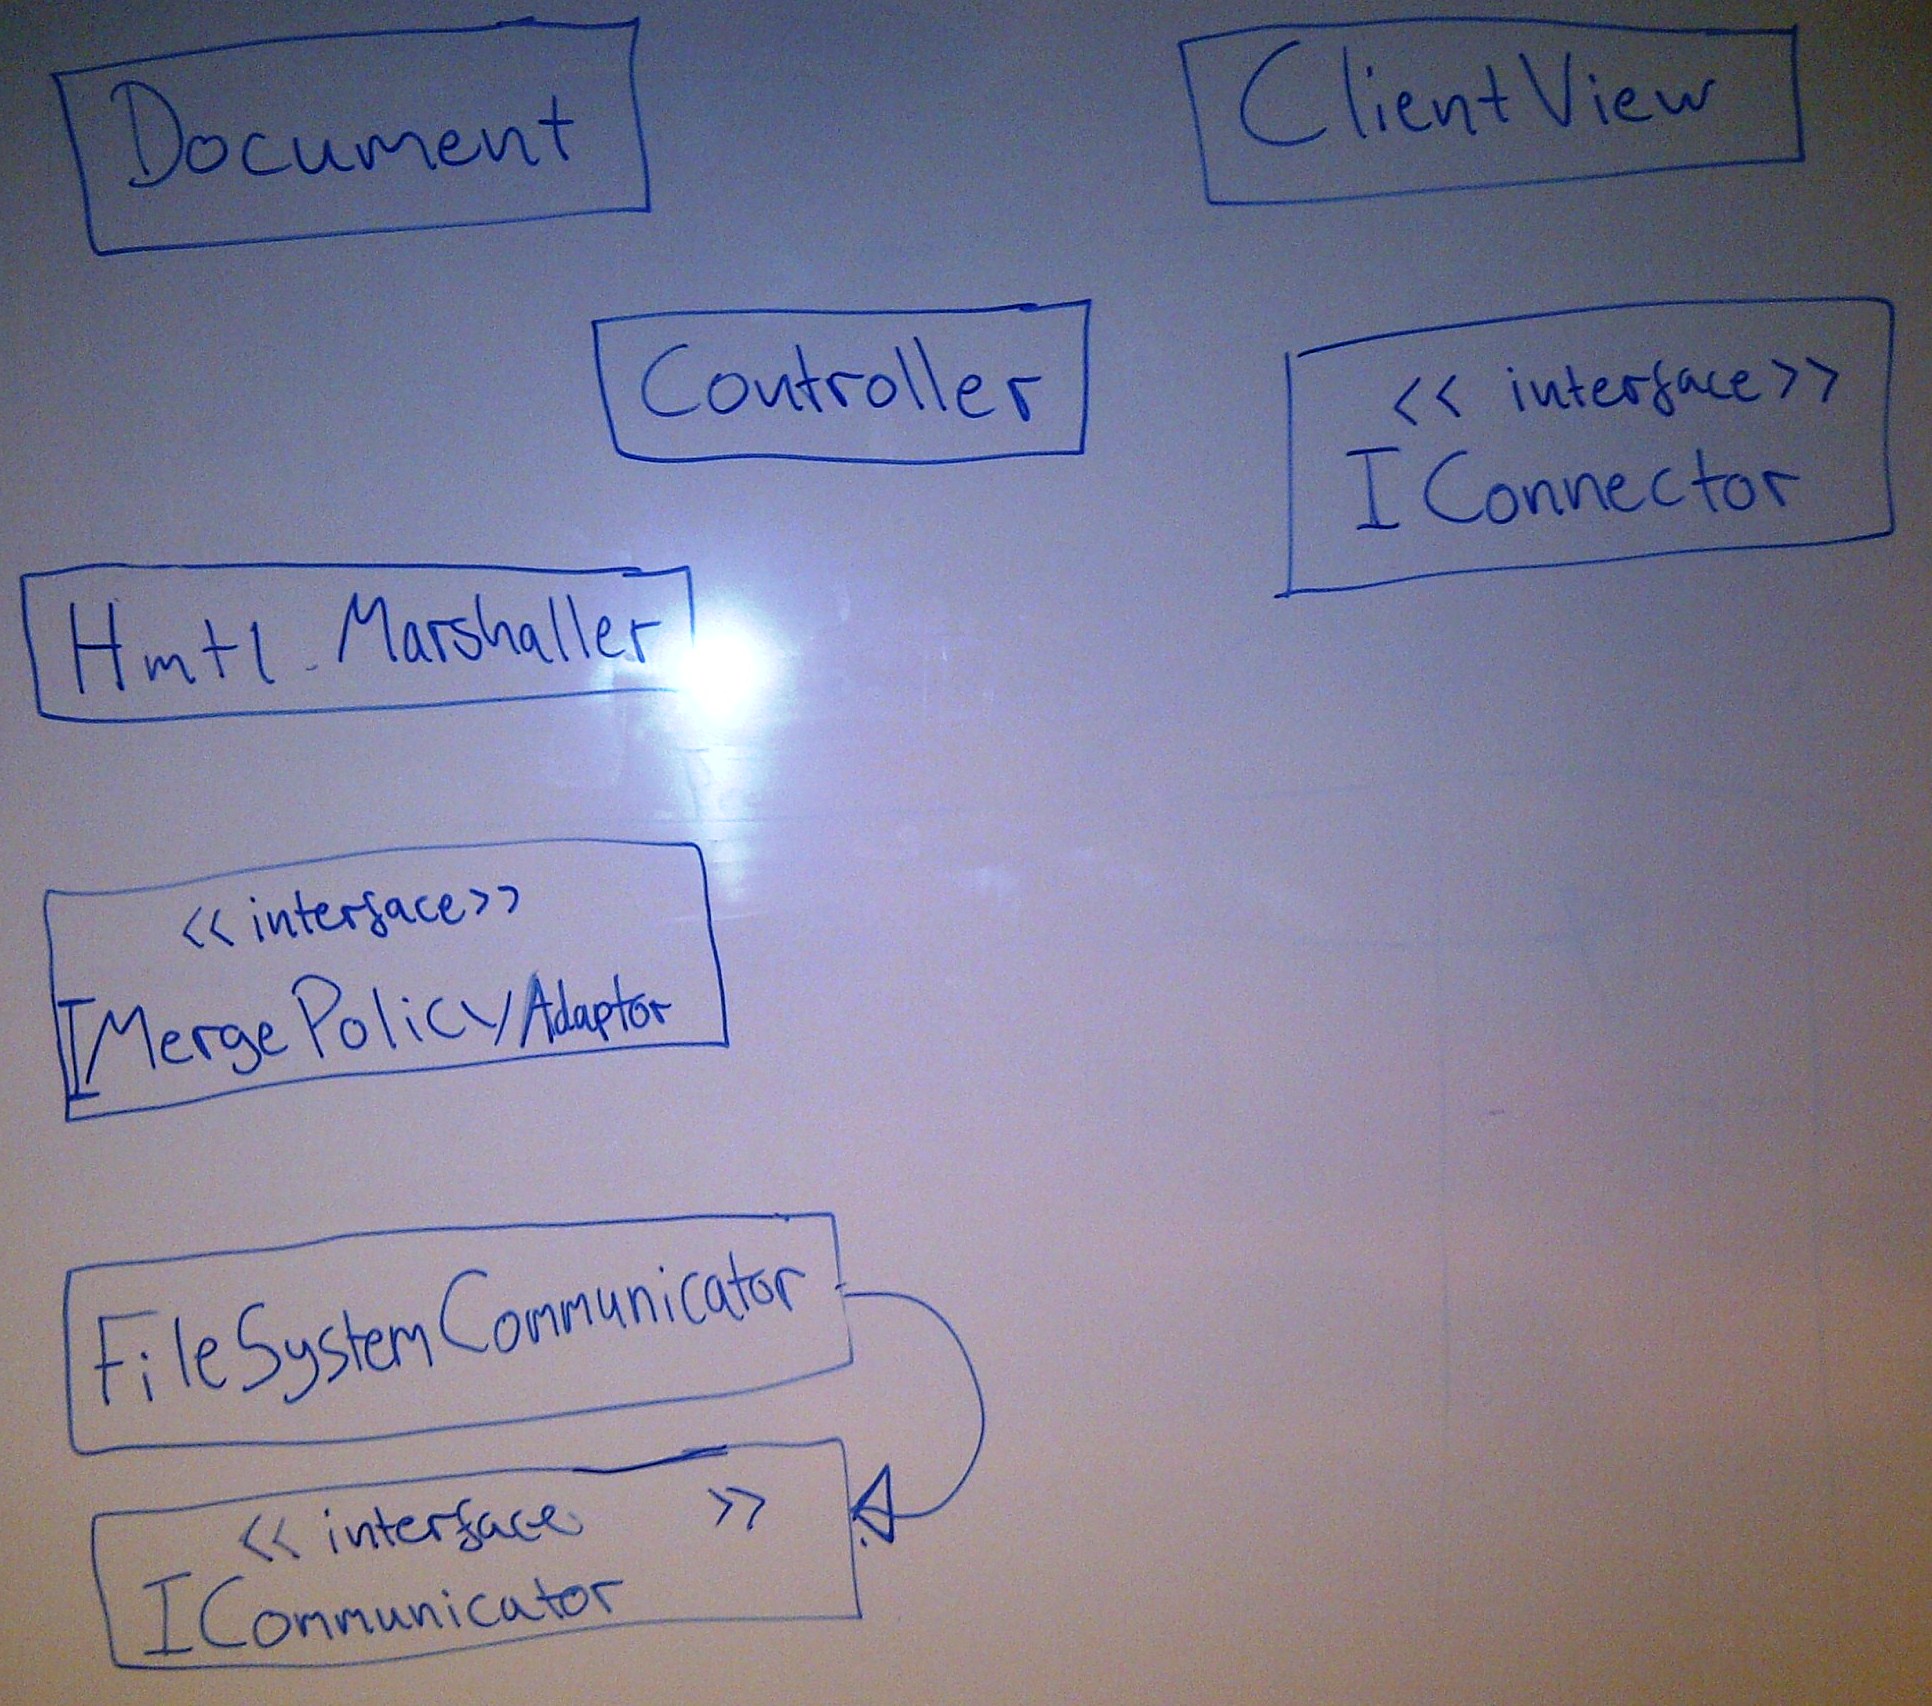 Document
ClientView
Controller
<< interface >>
IConnector
Hmtl.Marshaller
<< interface >>
IMergePolicyAdaptor
FileSystemCommunicator
<< interface >>
ICommunicator